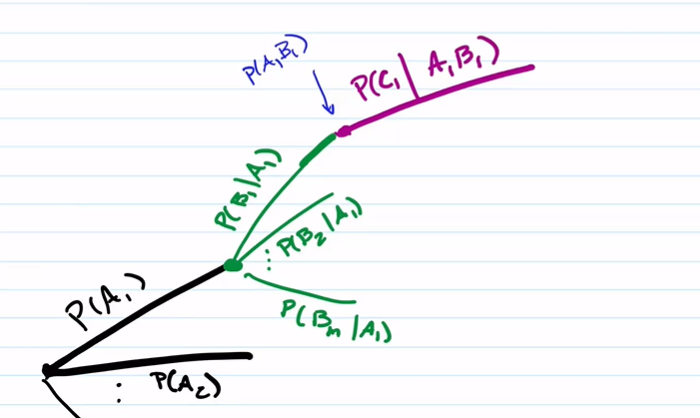 P(A₁B₁)
P(C₁ | A₁B₁)
P(B₁|A₁)
⋮ P(B₂|A₁)
P(Bₘ|A₁)
P(A₁)
⋮ P(A₂)